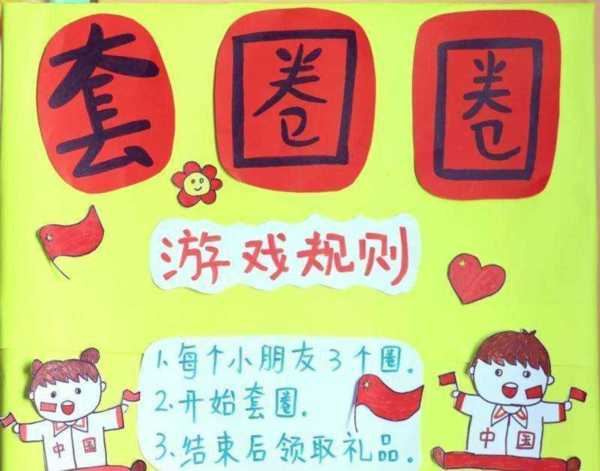 套圈圈
游戏规则
1.每个小朋友3个圈.
2.开始套圈.
3.结束后领取礼品.
中国
中国